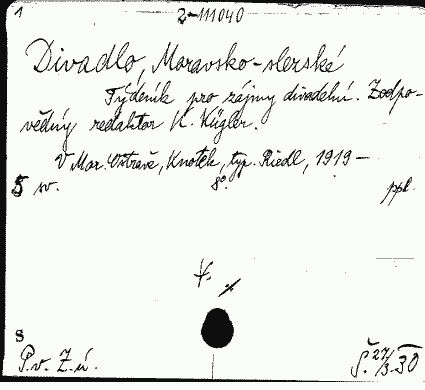 1 2-111040
Divadlo, Moravsko-slezské
Týdeník pro zájmy divadelní. Zodpo-
vědný redaktor K. Kügler.
V Mor. Ostravě, Knotek, typ. Riedl, 1919-
5 sv. 8°. ppl.
S
P. v. Z. ú. Š. 27/3 30